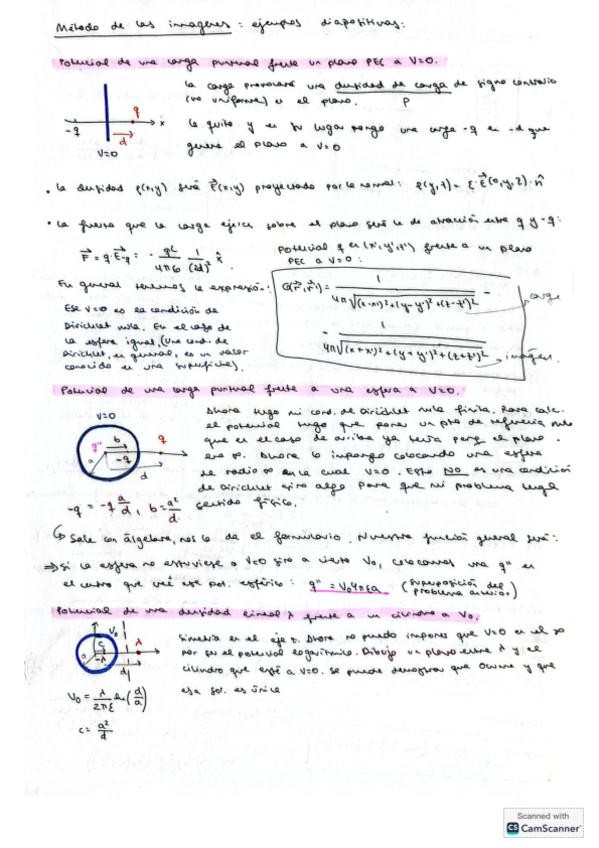 Método de las imágenes: ejemplos diapositivas:
Potencial de una carga puntual frente un plano PEC a V=0.
La carga provocará una densidad de carga de signo contrario
(no uniforme) en el plano. ρ
La quito y en su lugar pongo una carga -q en -d que
genere el plano a V=0
-q
q
d
x
V=0
• La densidad ρ(x,y) será E(x,y) proyectado por la normal: ρ(y,z) = ε·E(0,y,z)·n̂
• La fuerza que la carga ejerce sobre el plano será la de atracción entre q y -q:
F = q·E-q = - q²/4πε0 1/(2d)² x̂
Potencial q en (x',y',z') frente a un plano
PEC a V=0:
En general tenemos la expresión:
G(r,r') = 1/4π√(x-x')²+(y-y')²+(z-z')² -
carga
- 1/4π√(x+x')²+(y-y')²+(z-z')²
imagen.
Ese V=0 es la condición de
Dirichlet nula. En el caso de
la esfera igual. (Una cond. de
Dirichlet, en general, es un valor
conocido en una superficie).
Potencial de una carga puntual frente a una esfera a V=0.
V=0
q"
b
-q
q
a
d
Ahora tengo mi cond. de Dirichlet nula finita. Para calc.
el potencial tengo que poner un pto de referencia nulo
que en el caso de arriba ya tenía porq el plano
era ∞. Ahora lo impongo colocando una esfera
de radio ∞ en la cual V=0. Esto NO es una condición
de Dirichlet sino algo para que mi problema tenga
sentido físico.
-q = -q a/d , b = a²/d
↳ Sale con álgebra, nos lo da el formulario. Nuestra función general será:
⇒ Si la esfera no estuviese a V=0 sino a cierto V0, colocamos una q" en
el centro que cree ese pot. esférico: q" = V0 4πεa (Superposición del
problema anterior)
Potencial de una densidad lineal λ frente a un cilindro a V0.
V0
c
-λ
λ
a
d
Simetría en el eje z. Ahora no puedo imponer que V=0 en el ∞
por su el potencial logarítmico. Dibujo un plano entre λ y el
cilindro que esté a V=0. Se puede demostrar que ocurre y que
esa sol. es única
V0 = λ/2πε ln(d/a)
c = a²/d
Scanned with
CS CamScanner